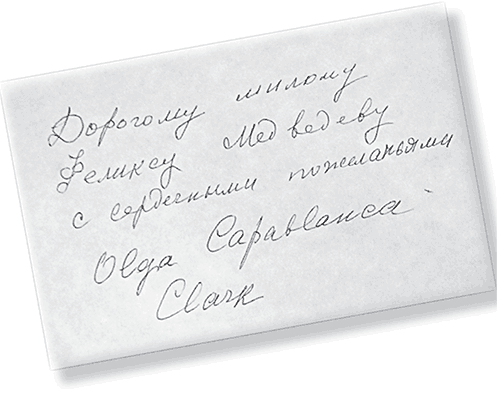 Дорогому милому
Феликсу Медведеву
с сердечными пожеланьями
Olga Capablanca
Clark